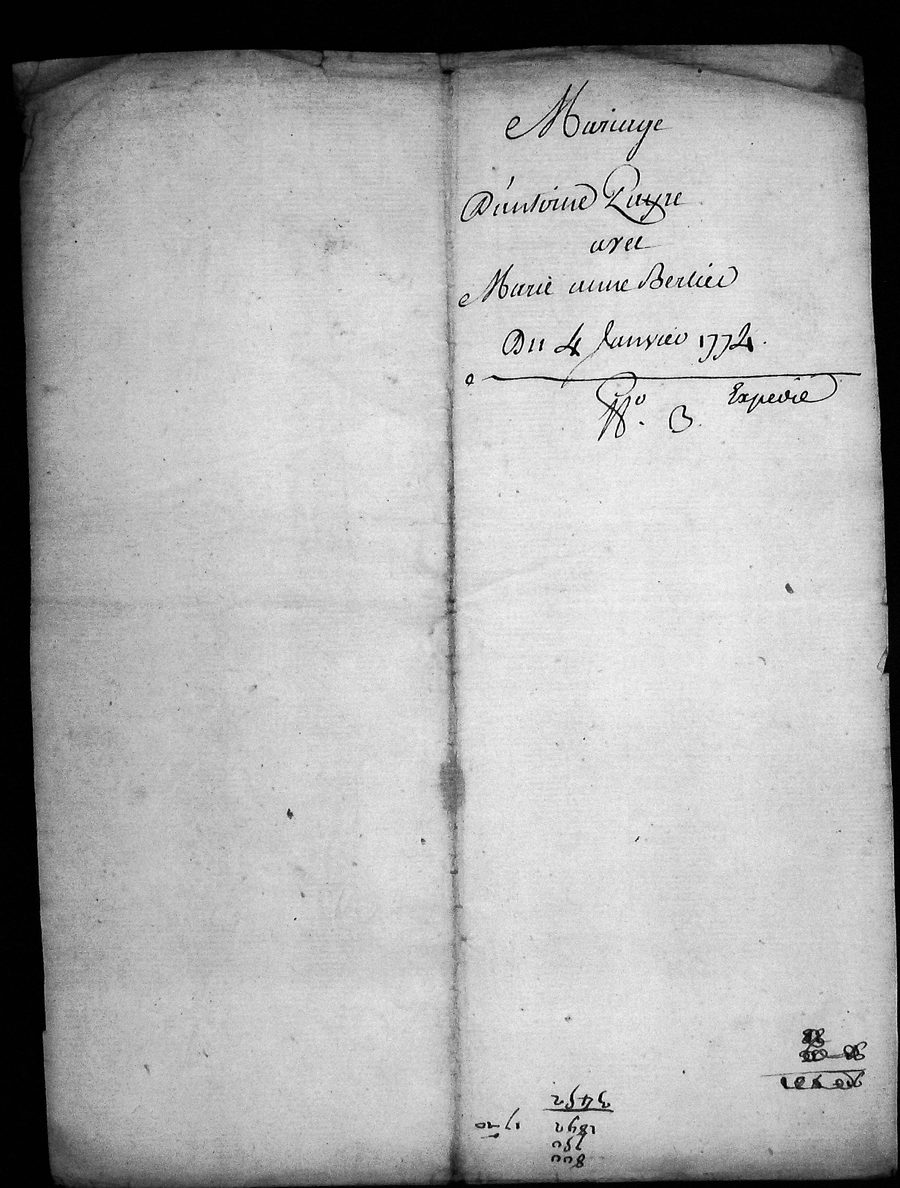 Mariage
D'antoine Payre
avec
Marie anne Berlier
Du 4 Janvier 1774.
Expedié
N.º 3.